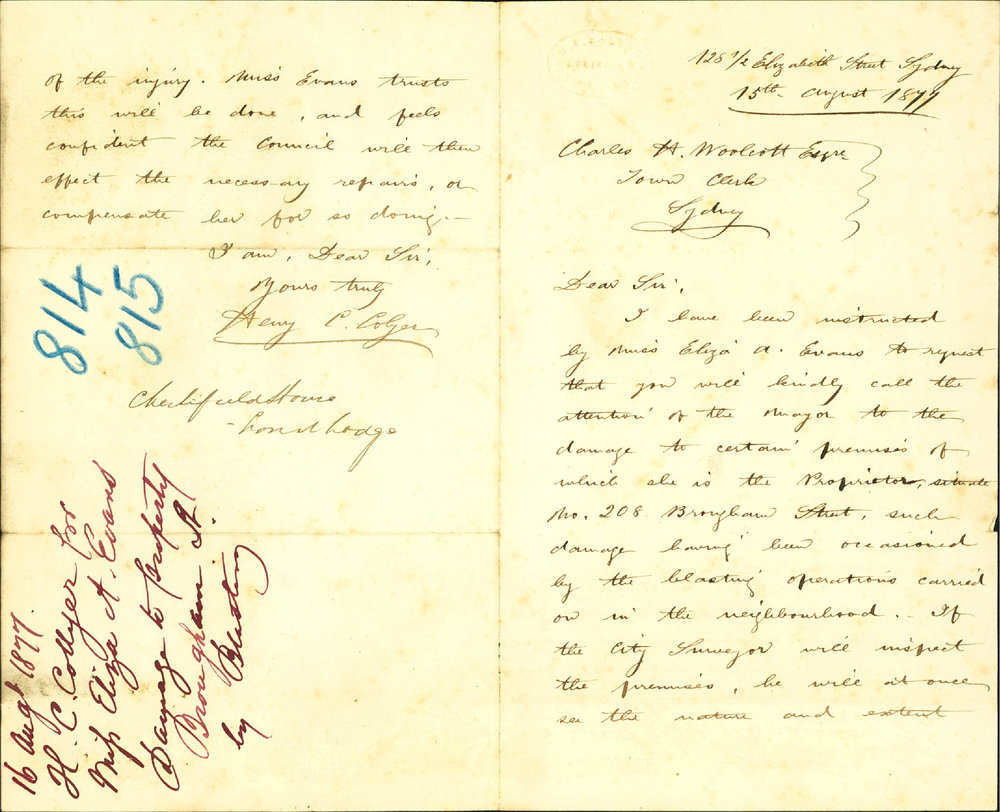 128 1/2 Elizabeth Street Sydney
15th August 1877
Charles H. Woolcott Esqre
Town Clerk
Sydney
Dear Sir,
I have been instructed
by Miss Eliza A. Evans to request
that you will kindly call the
attention of the Mayor to the
damage to certain premises of
which she is the Proprietor, situate
No. 208 Brougham Street, such
damage having been occasioned
by the blasting operations carried
on in the neighbourhood. If
the City Surveyor will inspect
the premises, he will at once
see the nature and extent
of the injury. Miss Evans trusts
this will be done, and feels
confident the Council will then
effect the necessary repairs, or
compensate her for so doing.—
I am, Dear Sir,
Yours truly
Henry C. Colyer
814
815
House
Lodge
16 Augt 1877.
H. C. Collyer for
Miss Eliza A. Evans
Damage to property
Brougham St
by Blasting